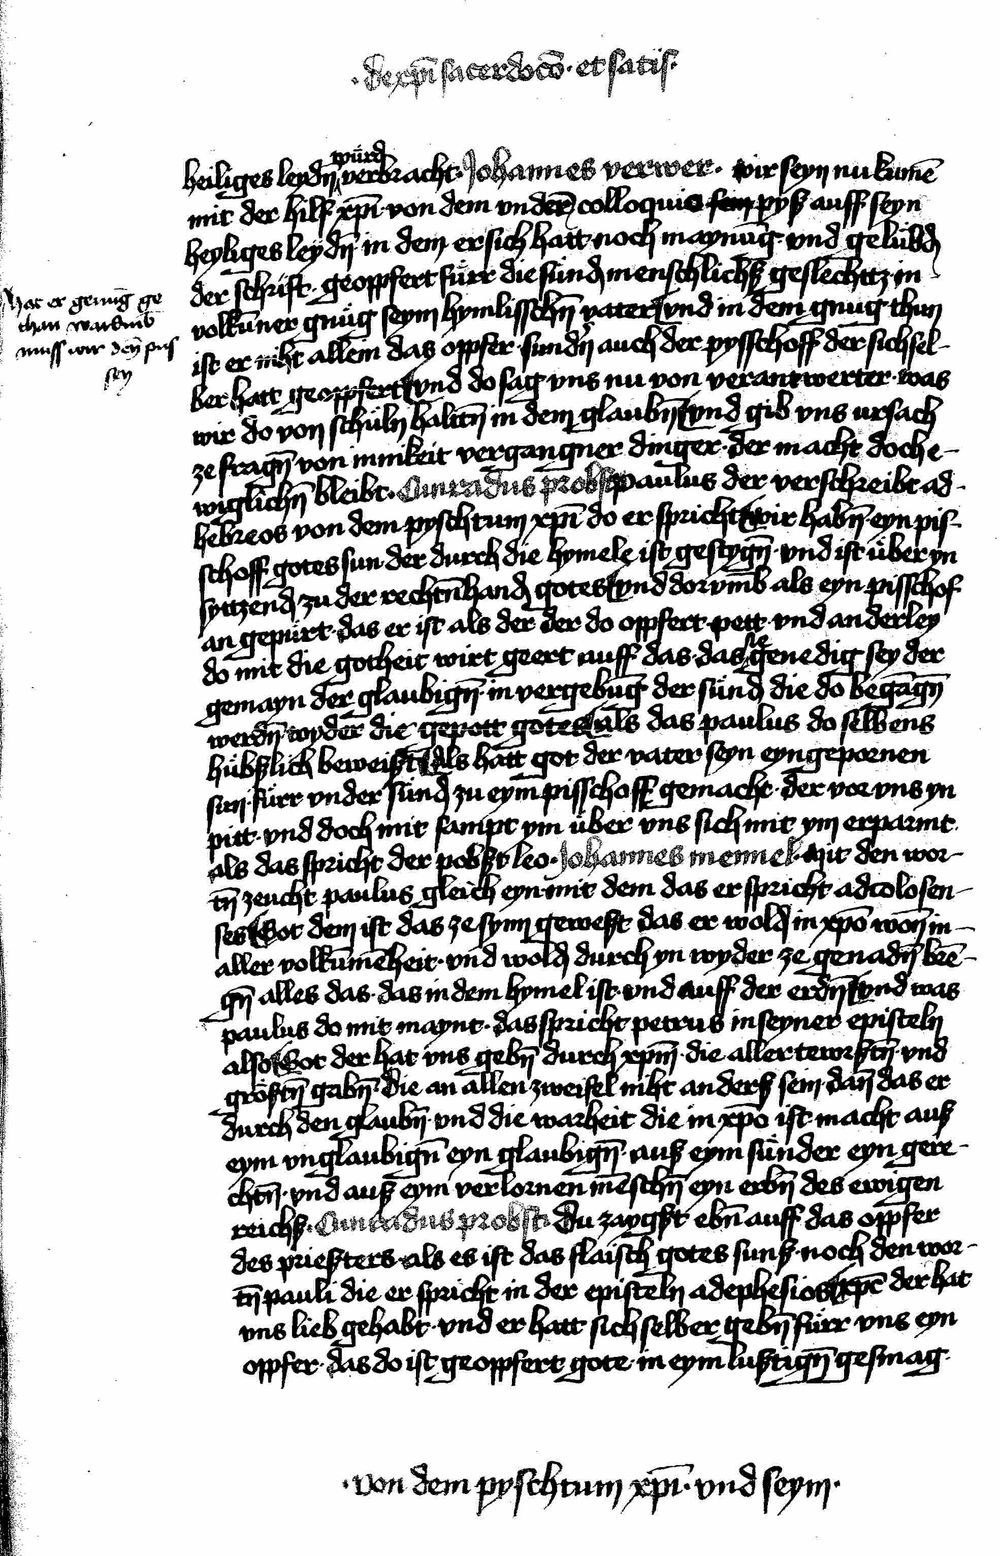 ·de xp̄i sacerdoco᷑· et satis·
würd
heiliges leydn̄ verbracht· Johannes verwer· wir seyn nu kumē
mit der hilf xp̄i· von dem vnderñ colloquio pyß auff seyn
heyliges leydn̄ in dem er sich hatt noch maynūg· vnd gelübd
der schrift· geopfert fürr die sünd menschlichs geslechttz in
volkūner gnüg seym hymlisschn̄ vater vnd in dem gnug thun
hat er genūg ge
than warumb
muss wir den̄ pus
sey
ist er niht allein das oppfer· sundn̄ auch der pysschoff der sich sel-
ber hatt geoppfert vnd do sag vns nu von verantwerter· was
wir do von schüln haltn̄ in dem glaubn̄ vnd gib vns ursach
ze fragn̄ von innikeit vergangner dinger· der macht doch e-
wiglichn̄ bleibt· Cunradus probst paulus der verschreibt ad
hebreos von dem pyschtum xp̄i do er spricht wir habn̄ eyn pis-
schoff gotes sun der durch die hymele ist gestygn̄· vnd ist über yn
syttzend zu der rechtn̄ hand gotes vnd dorvmb als eyn pisschof
an gepürt· das er ist als der der do oppfert· pett· vnd anderley
do mit die gotheit wirt geert auff das· das sie genedig sey der
gemayn der glaubign̄· in vergebūg der sünd die do begāgn̄
werdn̄ wyder die gepott gotes als das paulus do selbens
hübßlich beweißt als hatt got der vater seyn eyngepornen
sun· fürr vnder sünd zu eym pisschoff gemacht· der vor vns yn
pitt· vnd doch mit sampt ym über vns sich mit ym erparmt
als das spricht der pobßt leo· Johannes mennel· Mit den wor-
tn̄ zeucht paulus gleich eyn· mit dem das er spricht ad colosen-
ses Got dem ist das ze synn geweßt das er wold in xp̄o won̄ in-
aller volkūmēheit· vnd wold durch yn wyder ze genadn̄ brē-
gn̄ alles das· das in dem hymel ist· vnd auff der erdn̄ vnd was
paulus do mit maynt· das spricht petrus in seyner episteln
also Got der hat vns gebn̄ durch xp̄m̄· die allertewrßtn̄· vnd
größtn̄ gabn̄· die an allen zweifel niht anders sein· dan̄ das er
durch den glaubn̄· vnd die warheit die in xp̄o ist· macht auß
eym vnglaubign̄ eyn glaubign̄· auß eym sünder eyn gere-
chtn̄· vnd auß eym verlornen mēschn̄ eyn erbn̄ des ewigen
reichs· Cunradus probst· du zaygßt ebn̄ auff das oppfer
des prießters· als es ist das flaisch gotes suns· noch den wor-
tn̄ pauli die er spricht in der episteln ad ephesios xp̄c der hat
vns lieb gehabt· vnd er hatt sich selber gebn̄ fürr vns eyn
oppfer· das do ist geoppfert gote· in eym lußtign̄ gesmag·
·von dem pyschtum xp̄i· vnd seym·